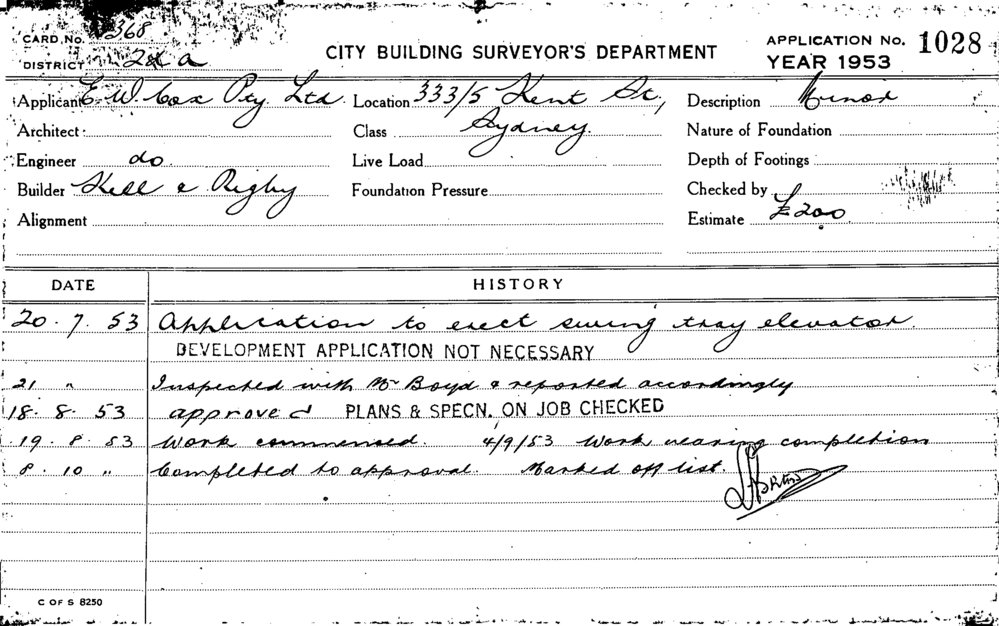 CARD No. 368
DISTRICT 2 a
CITY BUILDING SURVEYOR'S DEPARTMENT
APPLICATION No. 1028
YEAR 1953
Applicant E. W. Cox Pty. Ltd. Location 333/5 Kent St., Description Minor
Architect Class Sydney. Nature of Foundation
Engineer do Live Load Depth of Footings
Builder Kell & Rigby Foundation Pressure Checked by
Alignment Estimate £200
DATE HISTORY
20. 7. 53 Application to erect swing tray elevator.
DEVELOPMENT APPLICATION NOT NECESSARY
21 " Inspected with Mr Boyd & reported accordingly
18. 8. 53 approved PLANS & SPECN. ON JOB CHECKED
19. 8. 53 Work commenced. 4/9/53 Work nearing completion
8. 10 " Completed to approval. Marked off list.
C OF S 8250